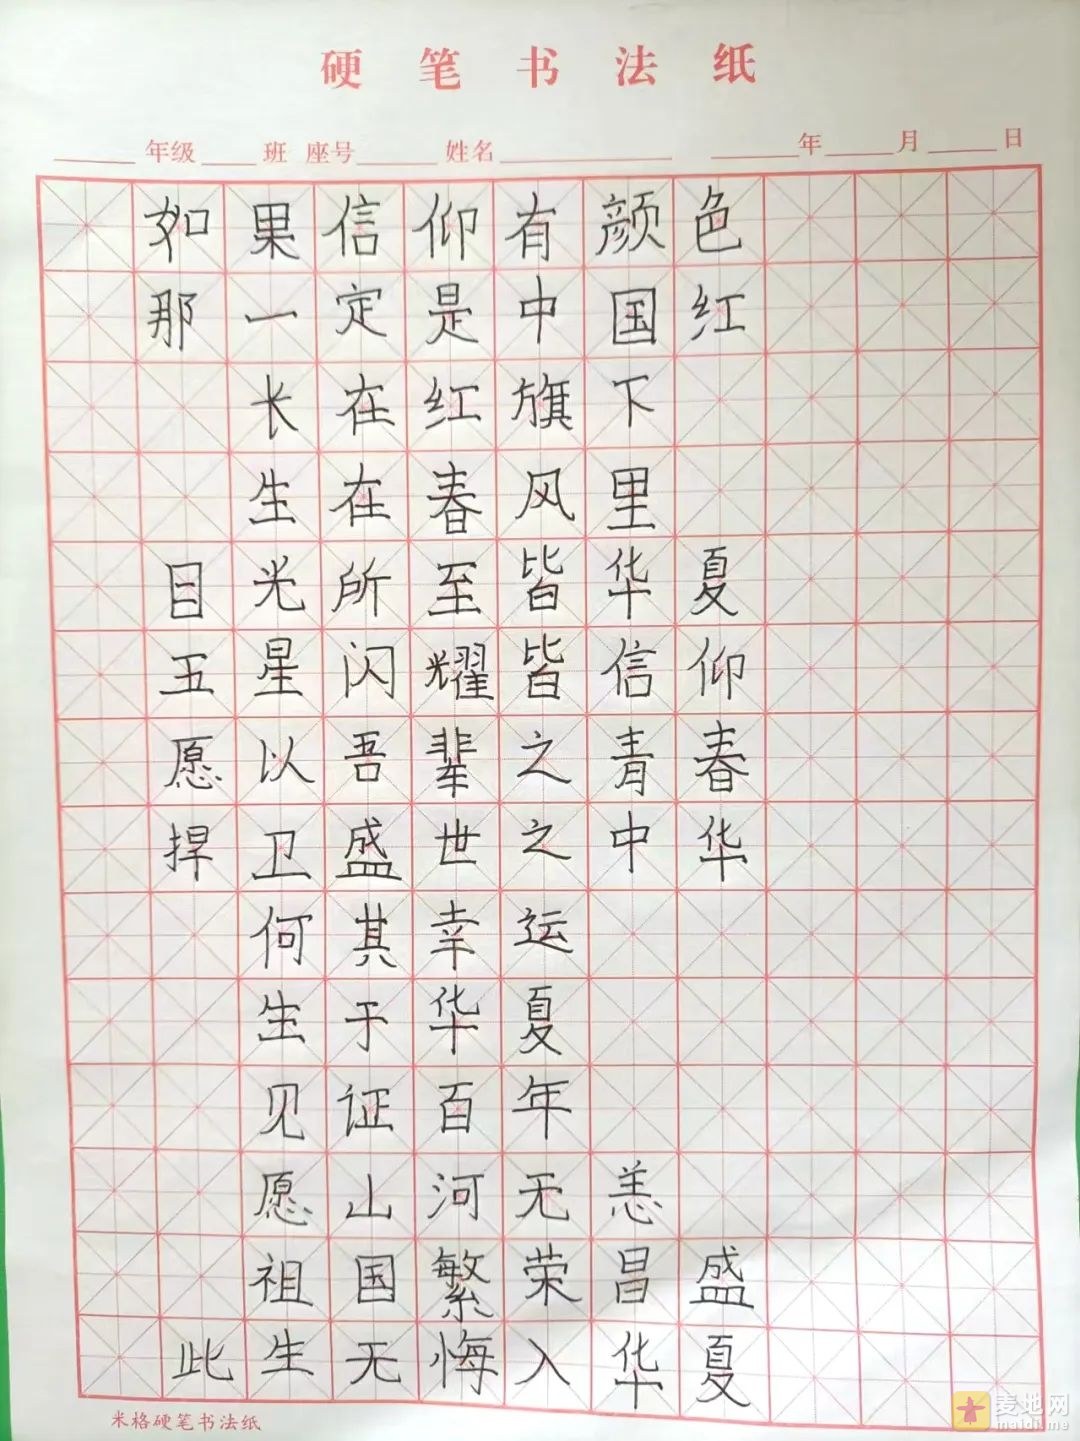 硬笔书法纸
年级 班 座号 姓名 年 月 日
如果信仰有颜色
那一定是中国红
长在红旗下
生在春风里
目光所至皆华夏
五星闪耀皆信仰
愿以吾辈之青春
捍卫盛世之中华
何其幸运
生于华夏
见证百年
愿山河无恙
祖国繁荣昌盛
此生无悔入华夏
米格硬笔书法纸
麦地网
maidi.me